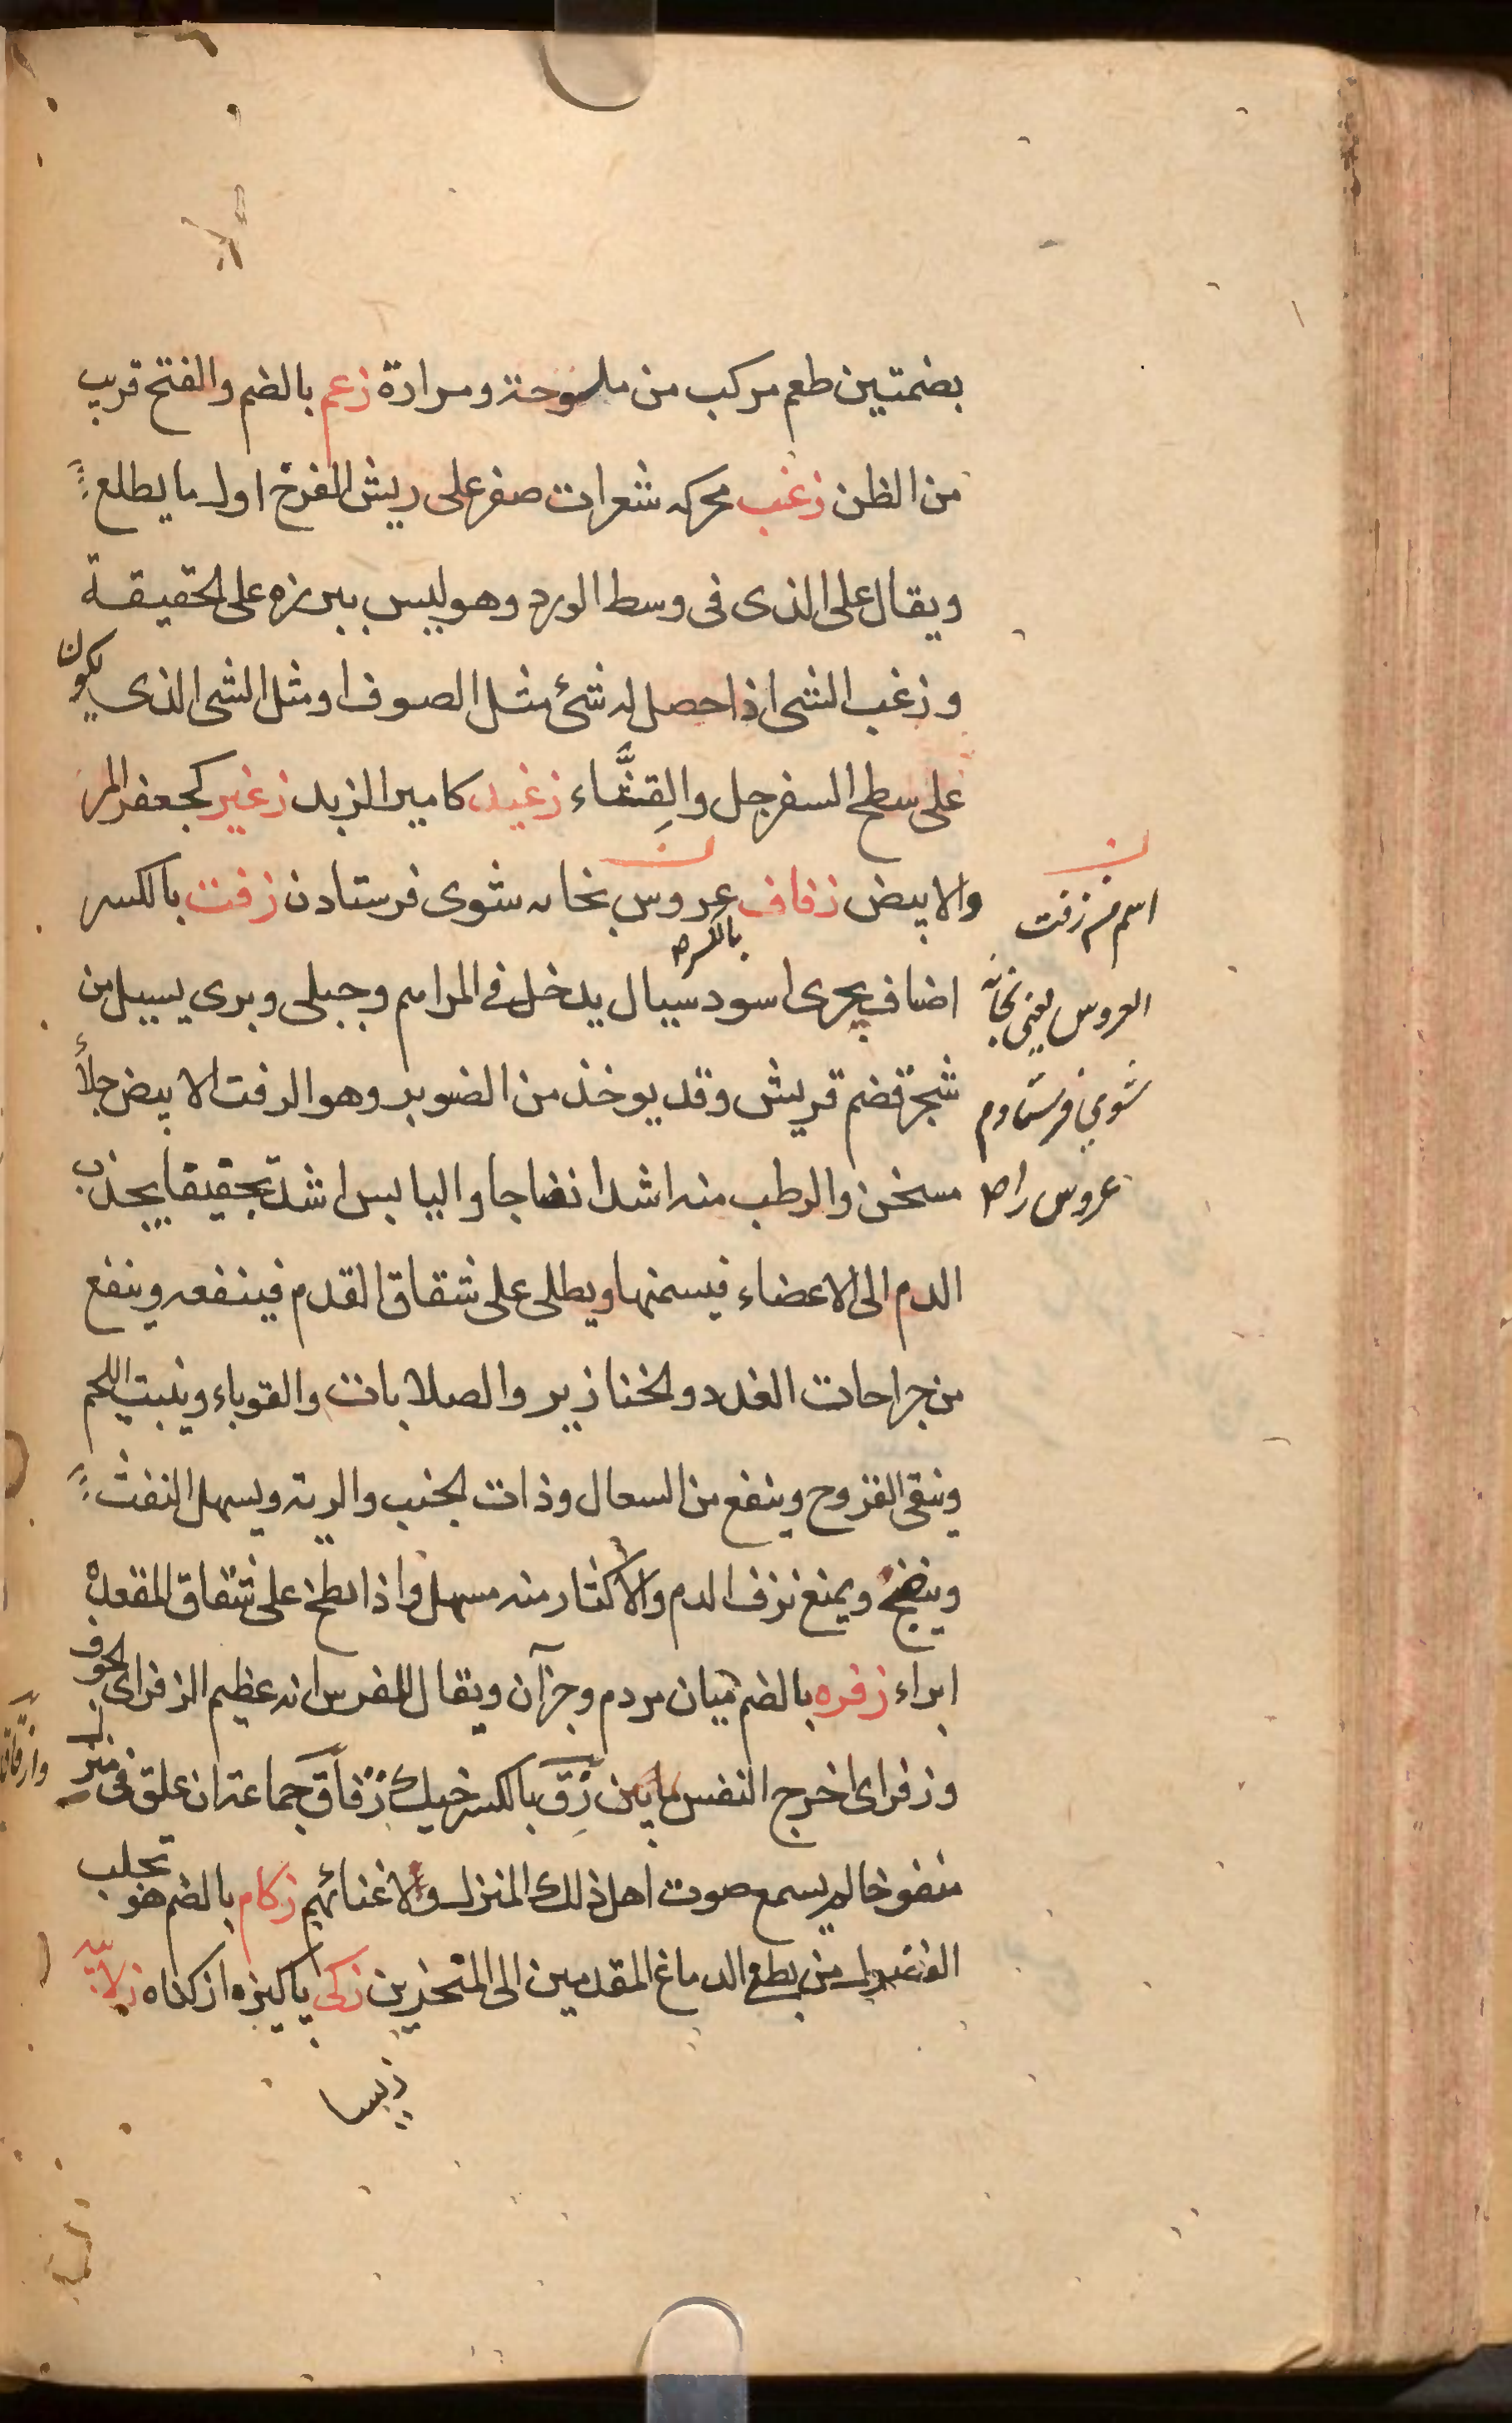 بضمتين طعم مركب من ملوحة ومرارة زعم بالضم والفتح قريب
من الظن زغب محركه شعرات صفر على ريش الفرخ اول ما يطلع
ويقال على الذى فى وسط الورد وهو ليس ببرزه على الحقيقة
وزغب الشى اذا حصل له شئ مثل الصوف او مثل الشى الذى يكون
على سطح السفرجل والقِثَّاء زغيد كامير الزبد زغبر كجعفر المر
والابيض زفاف عروس بخانه شوى فرستادن زفت بالكسر
بالكسر
اضاف بحرى اسود سيال يدخل فى المراهم وجبلى وبرى يسيل من
شجرة قضم قريش وقد يوخذ من الصنوبر وهو الزفت الابيض جلاء
مسخن والرطب منه اشد انضاجا واليابس اشد تجفيفا يجذب
الدم الى الاعضاء فيسمنها ويطلى على شقاق القدم فينفعه وينفع
من جراحات الغدد والخنازير والصلابات والقوباء وينبت اللحم
وينقى القروح وينفع من السعال وذات الجنب والريه ويسهل النفث
وينضج ويمنع نزف الدم والاكثار منه مسهل واذا لطخ على شقاق المقعدة
ابراء زفره بالضم ميان مردم وجز آن ويقال للفرس انه عظيم الزفر اى الجوف
وزفر اى اخرج النفس زِقّ بالكسر خيك زقاق جماعة ان علق فى منزل
منفوخا لم يسمع صوت اهل ذلك المنزل ولا غنائهم زكام بالضم هو تحلب
الفضول من بطع الدماغ المقدمين الى المنخرين زكى پاكيزه از كناه زلابيه
اسم من زفت
العروس يعنى بخانه
شوى فرستادم
عروس را